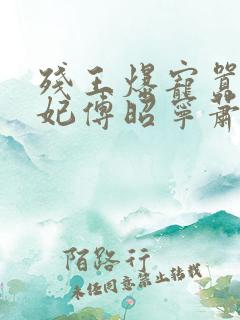 残王爆宠嚣
妃傅昭宁萧
陌路行
未经同意禁止转载